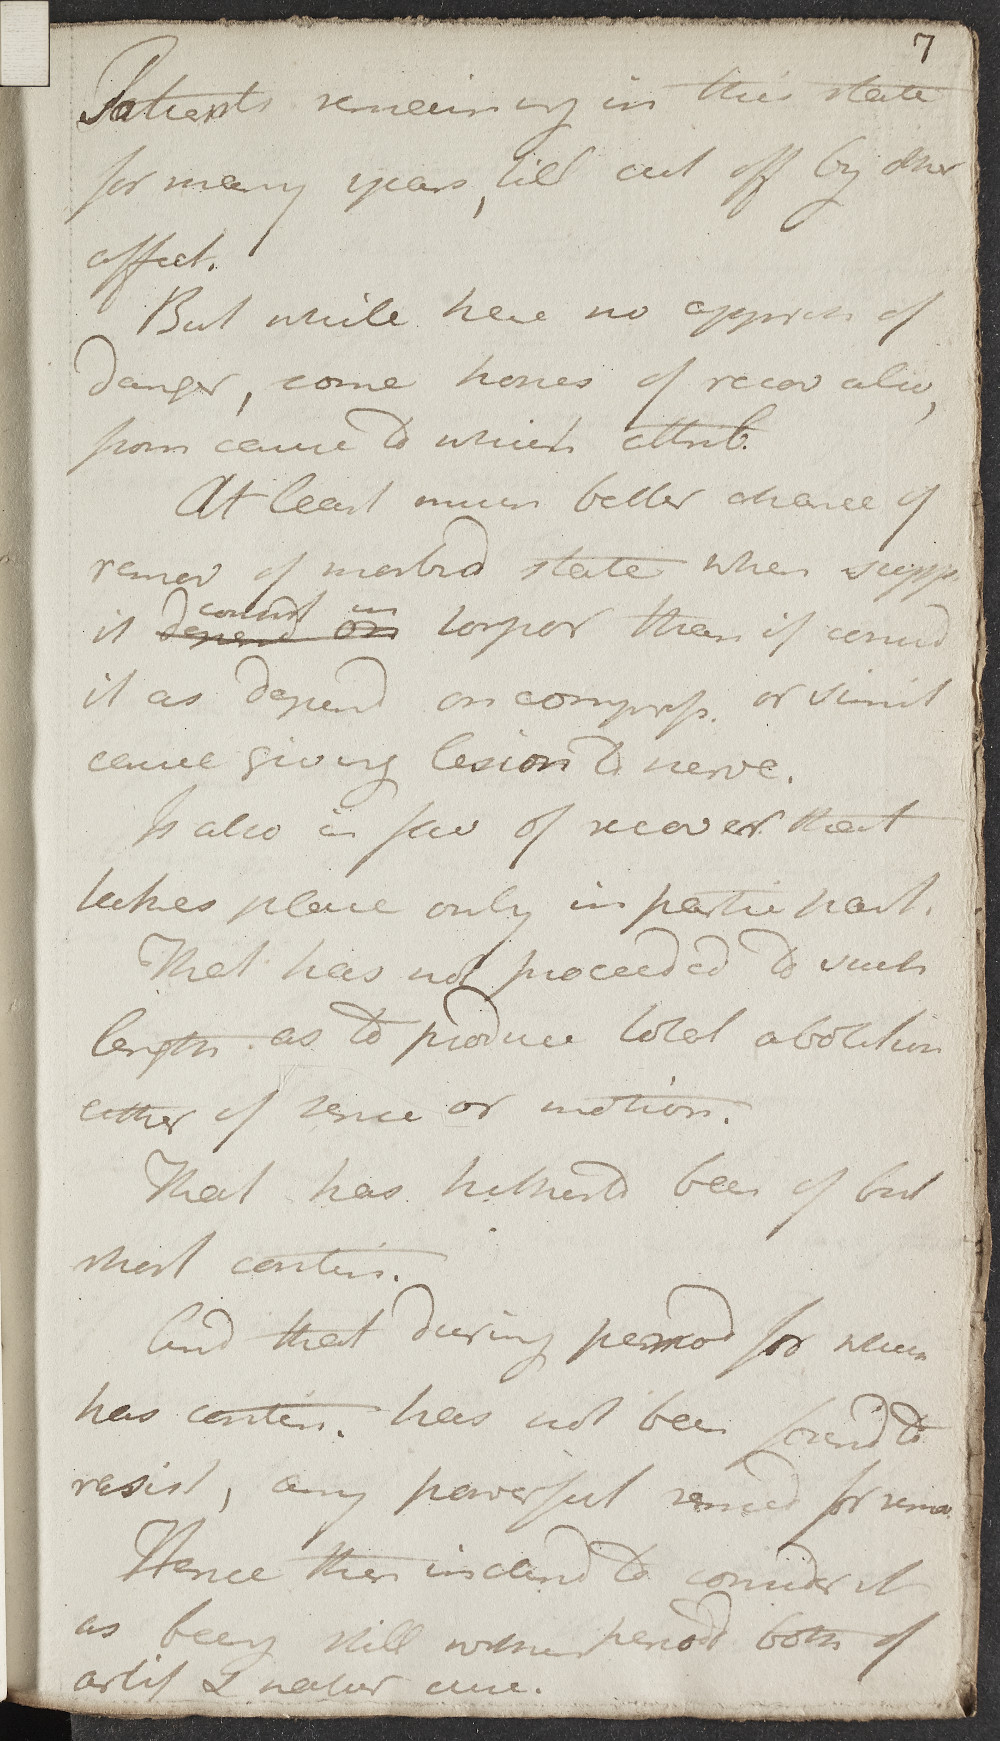 7
Patients remaining in this state
for many years, till cut off by other
affect.
But while here no apprehen of
danger, some hopes of recov also,
from cause to which attrib.
At least much better chance of
remov of morbid state when supp
it depend on consist in torpor than if consid
it as depend on compress. or simil
cause giving lesion to nerve.
Is also in fav of recover that
takes place only in partic part.
That has not proceeded to such
length as to produce total abolition
either of sense or motion.
That has hitherto been of but
short contin.
And that during period for which
has contin. has not been found to
resist, any powerful remed for remov
Hence then inclind to consider it
as being still within period both of
artif & natur cure.